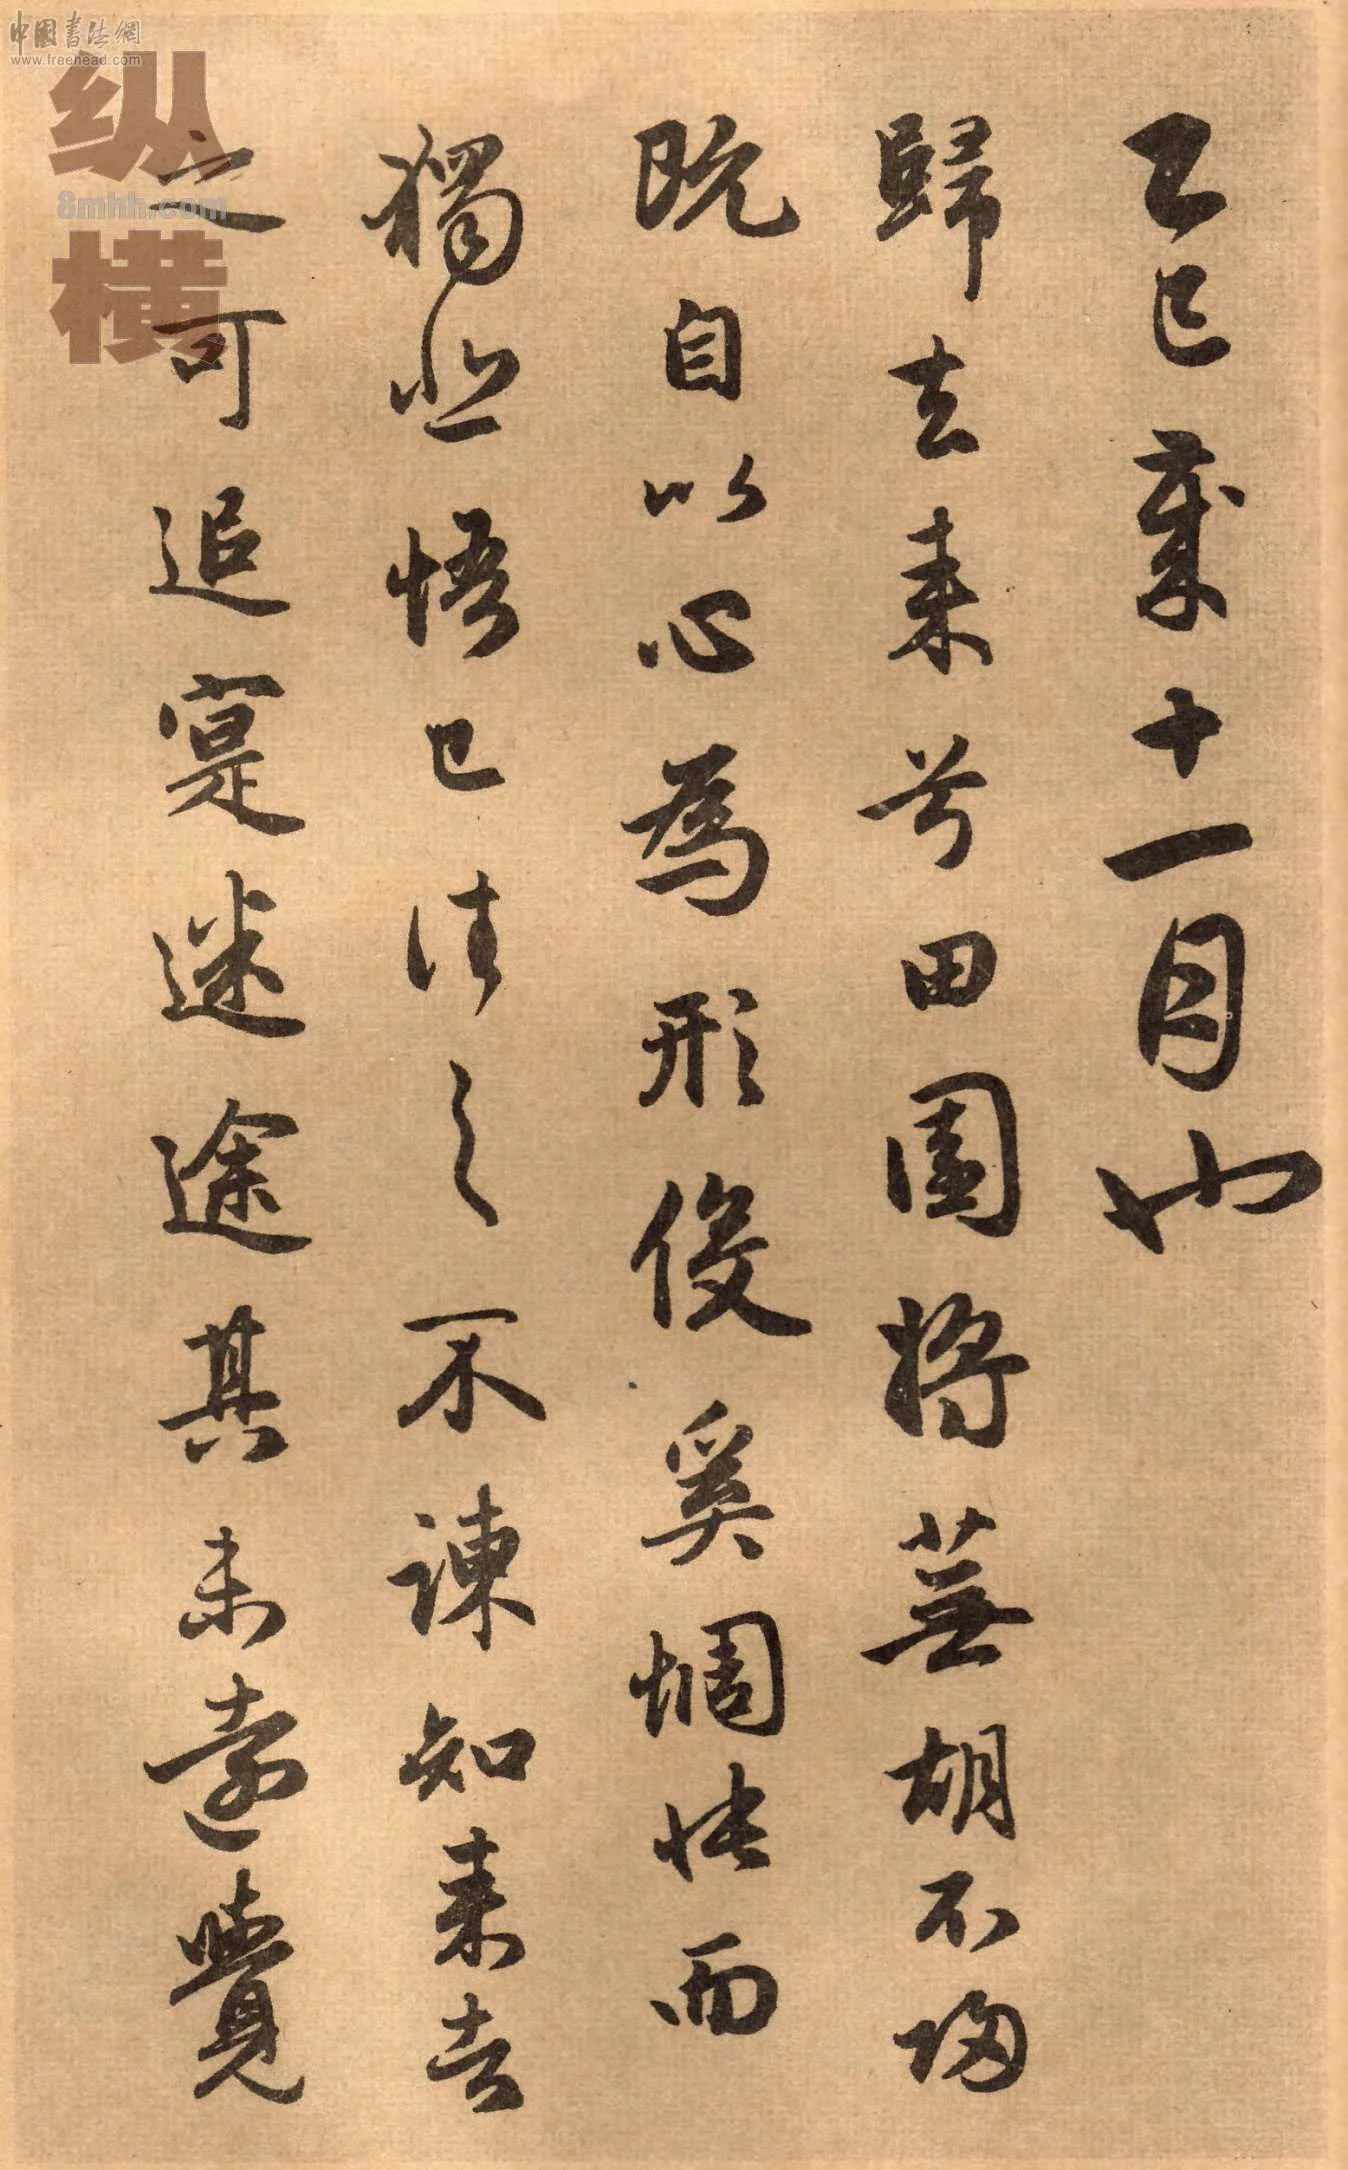 中國書法網
www.freehead.com
纵横
8mhh.com
乙巳歲十一月也
歸去来兮田園將蕪胡不歸
既自以心為形役奚惆悵而
獨悲悟已往之不諫知来者
之可追寔迷途其未遠覺